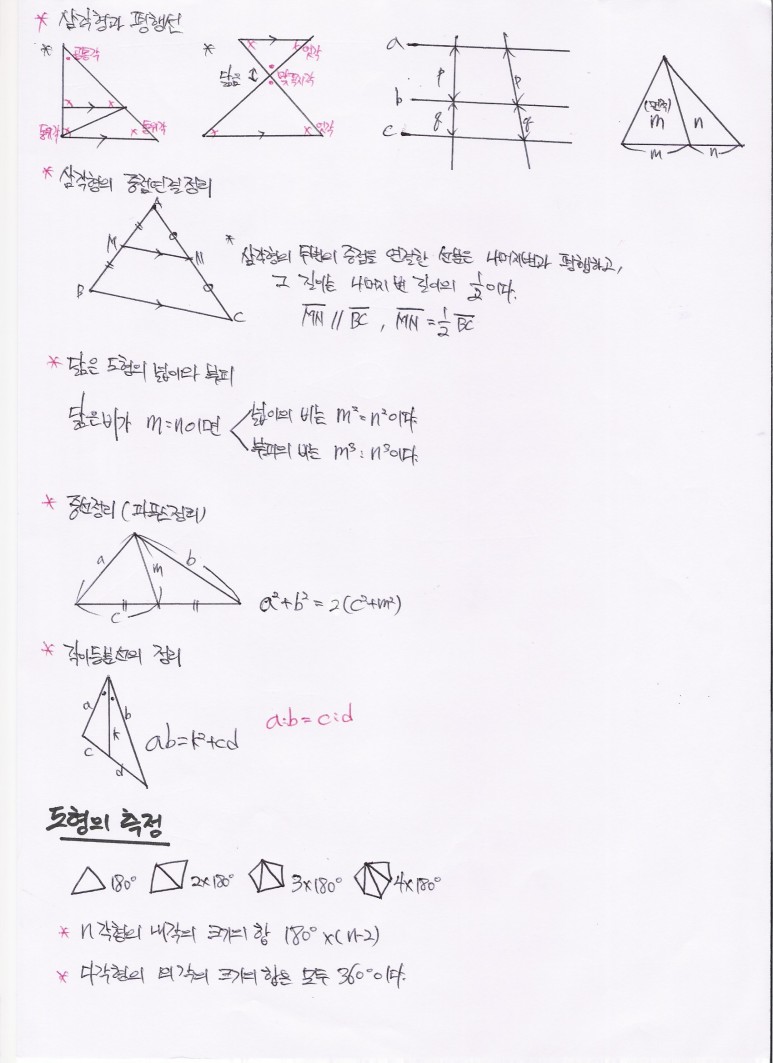 * 삼각형과 평행선
* 공통각 × × 동위각 × × 동위각
* × × 엇각
닮음 맞꼭지각
× × 엇각
a
p p
b
q q
c
(면적)
m n
m n
* 삼각형의 중점연결정리
A
M N
B C
* 삼각형의 두변의 중점을 연결한 선분은 나머지변과 평행하고,
그 길이는 나머지 변 길이의 1/2이다.
MN // BC , MN = 1/2 BC
* 닮은 도형의 넓이와 부피
닮은비가 m:n이면
넓이의 비는 m²:n²이다.
부피의 비는 m³:n³이다.
* 중선정리 (파푸스정리)
a m b
c
a²+b² = 2(c²+m²)
* 각이등분선의 정리
a b
k
c d
ab=k²+cd
a:b = c:d
도형의 측정
180° 2×180° 3×180° 4×180°
* n각형의 내각의 크기의 합 180°×(n-2)
* 다각형의 외각의 크기의 합은 모두 360°이다.